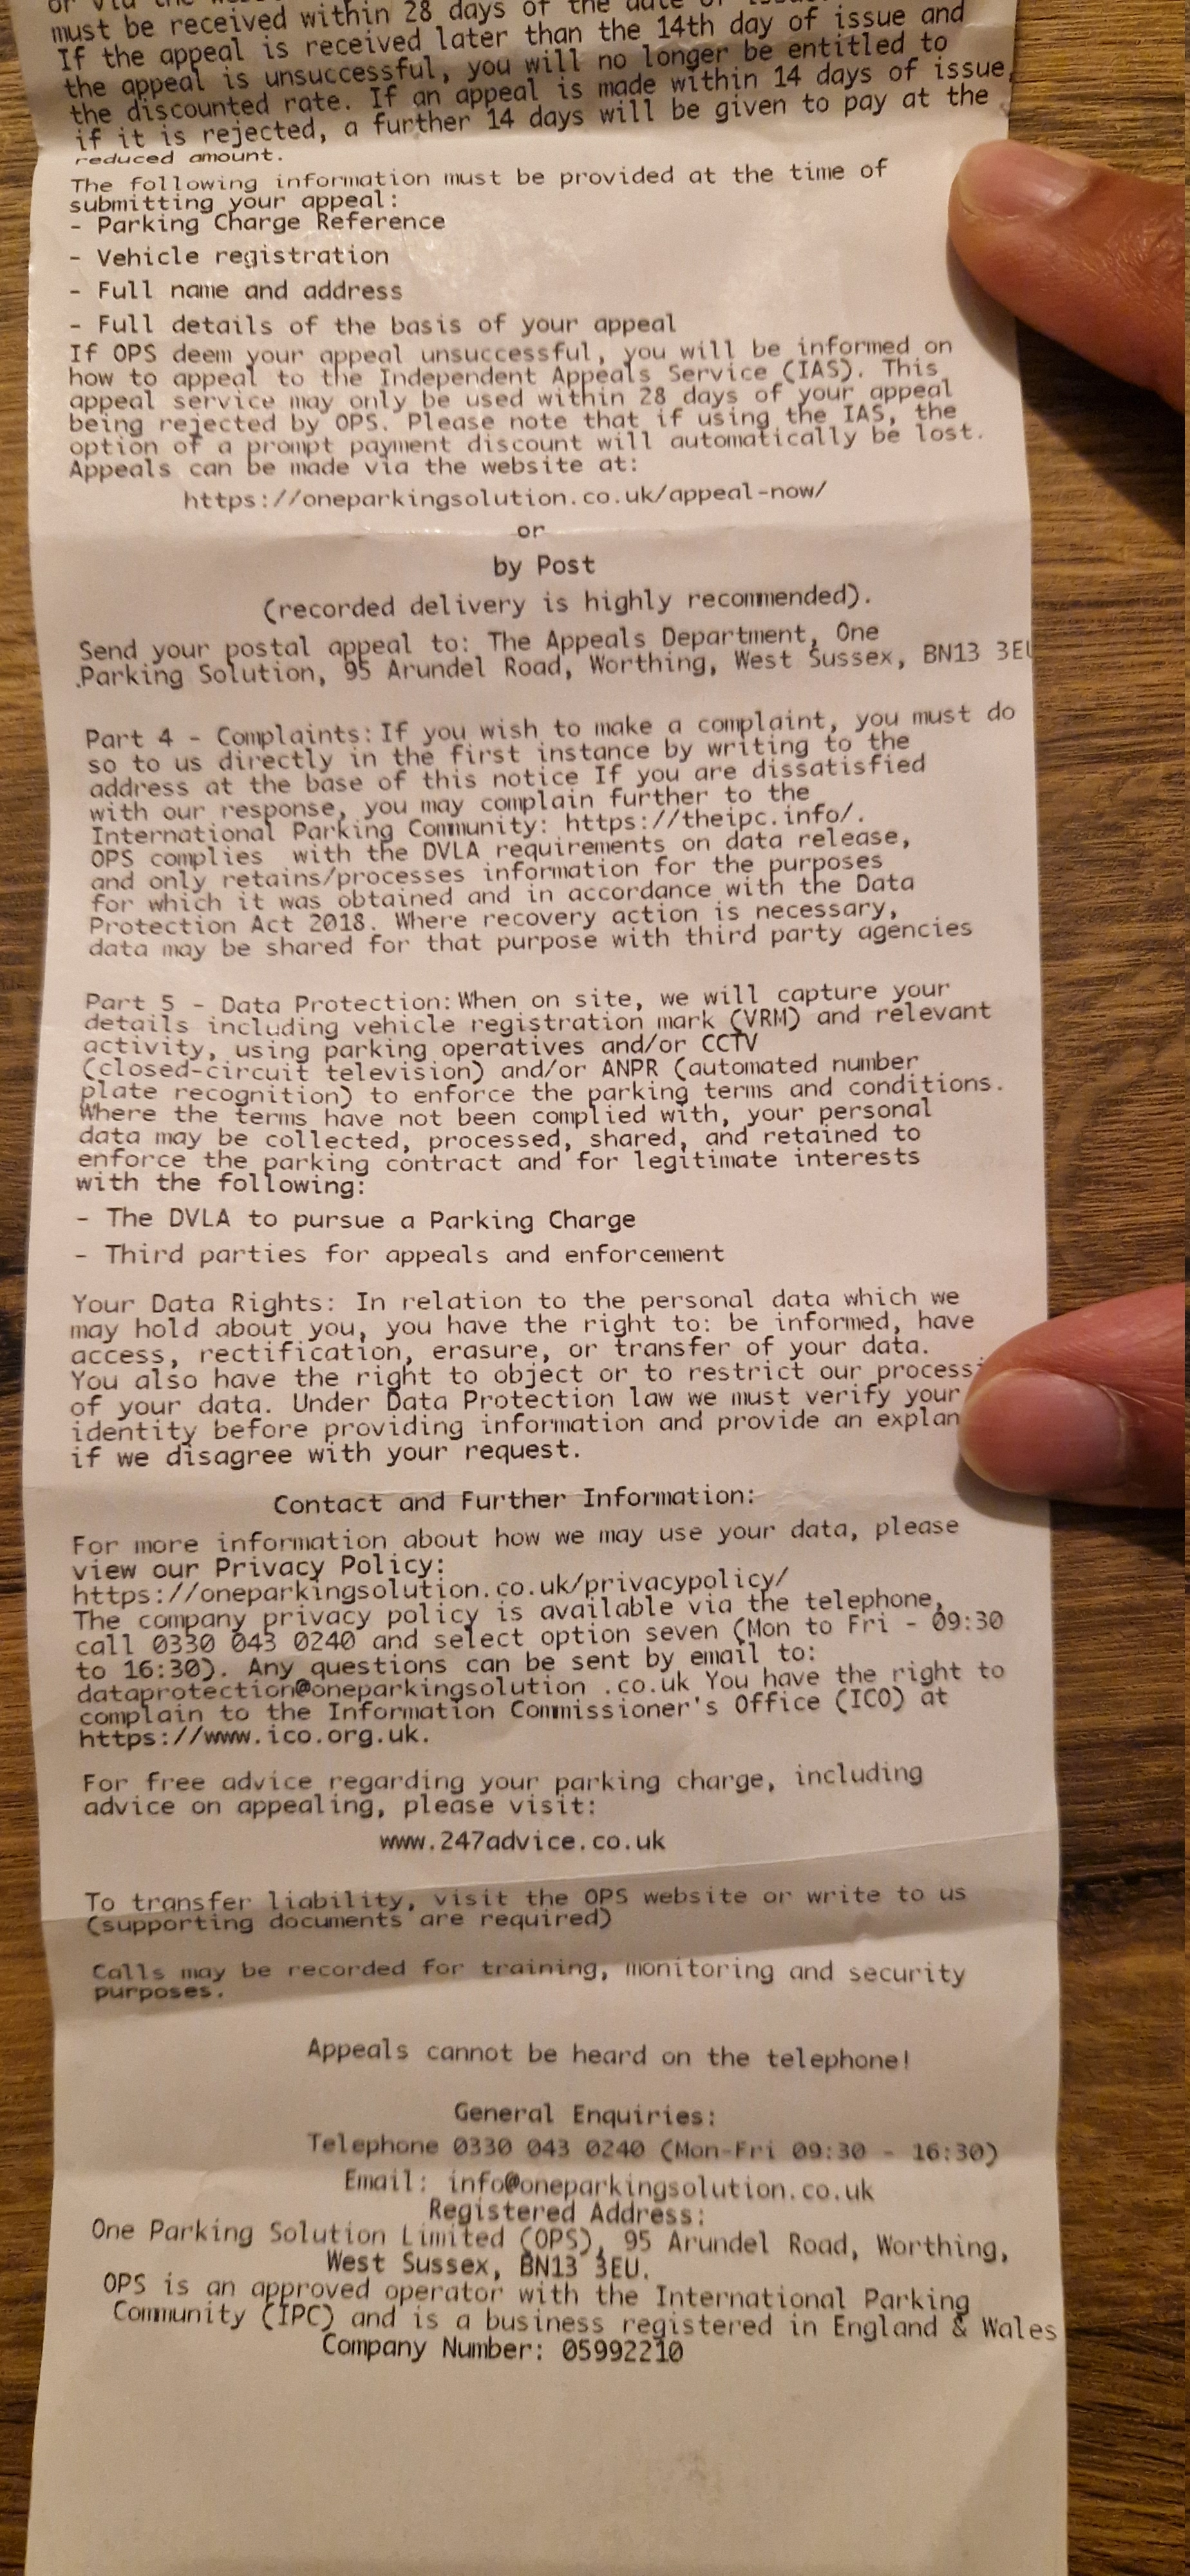 must be received within 28 days of the date of
If the appeal is received later than the 14th day of issue and
the appeal is unsuccessful, you will no longer be entitled to
the discounted rate. If an appeal is made within 14 days of issue,
if it is rejected, a further 14 days will be given to pay at the
reduced amount.
The following information must be provided at the time of
submitting your appeal:
- Parking Charge Reference
- Vehicle registration
- Full name and address
- Full details of the basis of your appeal
If OPS deem your appeal unsuccessful, you will be informed on
how to appeal to the Independent Appeals Service (IAS). This
appeal service may only be used within 28 days of your appeal
being rejected by OPS. Please note that if using the IAS, the
option of a prompt payment discount will automatically be lost.
Appeals can be made via the website at:
https://oneparkingsolution.co.uk/appeal-now/
or
by Post
(recorded delivery is highly recommended).
Send your postal appeal to: The Appeals Department, One
Parking Solution, 95 Arundel Road, Worthing, West Sussex, BN13 3EU
Part 4 - Complaints: If you wish to make a complaint, you must do
so to us directly in the first instance by writing to the
address at the base of this notice If you are dissatisfied
with our response, you may complain further to the
International Parking Community: https://theipc.info/.
OPS complies with the DVLA requirements on data release,
and only retains/processes information for the purposes
for which it was obtained and in accordance with the Data
Protection Act 2018. Where recovery action is necessary,
data may be shared for that purpose with third party agencies
Part 5 - Data Protection: When on site, we will capture your
details including vehicle registration mark (VRM) and relevant
activity, using parking operatives and/or CCTV
(closed-circuit television) and/or ANPR (automated number
plate recognition) to enforce the parking terms and conditions.
Where the terms have not been complied with, your personal
data may be collected, processed, shared, and retained to
enforce the parking contract and for legitimate interests
with the following:
- The DVLA to pursue a Parking Charge
- Third parties for appeals and enforcement
Your Data Rights: In relation to the personal data which we
may hold about you, you have the right to: be informed, have
access, rectification, erasure, or transfer of your data.
You also have the right to object or to restrict our processi
of your data. Under Data Protection law we must verify your
identity before providing information and provide an explan
if we disagree with your request.
Contact and Further Information:
For more information about how we may use your data, please
view our Privacy Policy:
https://oneparkingsolution.co.uk/privacypolicy/
The company privacy policy is available via the telephone,
call 0330 043 0240 and select option seven (Mon to Fri - 09:30
to 16:30). Any questions can be sent by email to:
dataprotection@oneparkingsolution .co.uk You have the right to
complain to the Information Commissioner's Office (ICO) at
https://www.ico.org.uk.
For free advice regarding your parking charge, including
advice on appealing, please visit:
www.247advice.co.uk
To transfer liability, visit the OPS website or write to us
(supporting documents are required)
Calls may be recorded for training, monitoring and security
purposes.
Appeals cannot be heard on the telephone!
General Enquiries:
Telephone 0330 043 0240 (Mon-Fri 09:30 - 16:30)
Email: info@oneparkingsolution.co.uk
Registered Address:
One Parking Solution Limited (OPS), 95 Arundel Road, Worthing,
West Sussex, BN13 3EU.
OPS is an approved operator with the International Parking
Community (IPC) and is a business registered in England & Wales
Company Number: 05992210